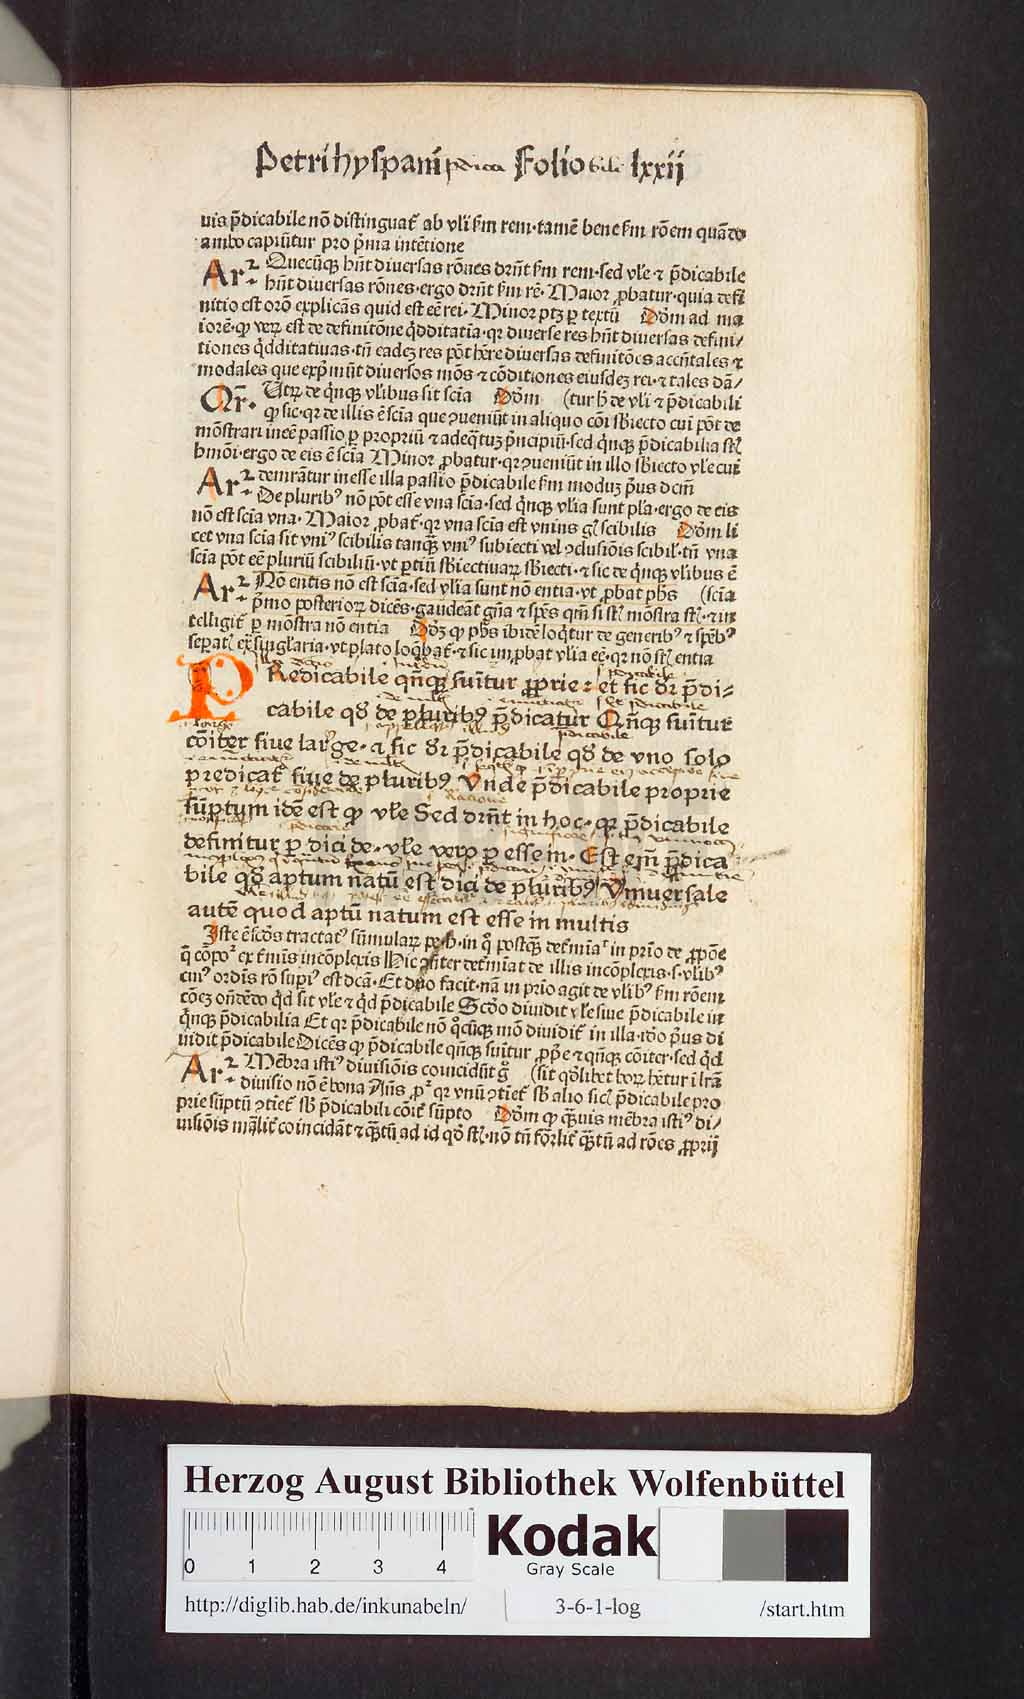 Petri hyspani Folio lxxii
uis p̄dicabile nō distinguat᷑ ab vl̓i ẜm rem·tamē bene ẜm rōem quādo
ambo capiūtur pro p̄ma intētione
Ar²· Quecūq̄ hn̄t diuersas rōnes drn̄t ẜm rem·sed vl̓e ⁊ p̄dicabile
hn̄t diuersas rōnes·ergo drn̄t ẜm rē· Maior ꝓbatur·quia defi
nitio est orō explicās quid est eē rei· Minor ptꝫ ꝑ textū Dōm ad ma
iorē·ꝙ veꝝ est de definitōne qͥdditatīa·qꝛ diuerse res hn̄t diuersas defini/
tiones qͥdditatiuas·tn̄ eadeꝫ res pōt hēre diuersas definitōes accn̄tales ⁊
modales que exp̄mūt diuersos mōs ⁊ cōditiones eiusdeꝫ rei·⁊ tales dā/
Qr̄· Vtꝝ de qͥnqꝫ vl̓ibus sit scīa Dōm (tur ħ de vl̓i ⁊ p̄dicabili
ꝙ sic·qꝛ de illis ē scīa que ↄueniūt in aliquo cōi sb̄iecto cui pōt de
mōstrari ineē passio ꝑ propriū ⁊ adeq̄tuꝫ pͥncipiū·sed qͥnqꝫ p̄dicabilia st̄
hmōi·ergo de eis ē scīa Minor ꝓbatur·qꝛ ↄueniūt in illo sb̄iecto vl̓e cui
Ar²· demrātur inesse illa passio p̄dicabile ẜm moduꝫ pͥus dcm̄
De pluribꝰ nō pōt esse vna scīa·sed qͥnqꝫ vl̓ia sunt pl̓a·ergo de eis
nō est scīa vna· Maior ꝓbat᷑·qꝛ vna scīa est vnius gn̄ scibilis Dōm li
cet vna scīa sit vniꝰ scibilis tanqꝫ vniꝰ subiecti vel ↄclusiōis scibil̓·tn̄ vna
scīa pōt eē pluriū scibiliū·vt ꝑtiū sb̄iectiuaꝝ sb̄iecti·⁊ sic de qͥnqꝫ vl̓ibus ē
Ar²· Nō entis nō est scīa·sed vl̓ia sunt nō entia·vt ꝓbat ph̄s (scīa
p̄mo posterioꝝ dicēs·gaudeāt gn̄a ⁊ spēs qm̄ si st̄ mōstra st̄·⁊ in
telligit᷑ ꝑ mōstra nō entia Dōꝫ ꝙ ph̄s ibidē loqͥtur de generibꝰ ⁊ spēbꝰ
seꝑatꝭ ex̄ singl̓aria·vt plato loqͥbat᷑·⁊ sic imꝓbat vl̓ia eē·qꝛ nō st̄ entia
PRedicabile qn̄qꝫ sumitur ꝓprie: et sic dr̄ p̄di⸗
cabile qd̓ de pluribꝰ p̄dicatur Qn̄qꝫ sumitur
cōiter siue large·⁊ sic dr̄ p̄dicabile qd̓ de vno solo
predicat᷑ siue de pluribꝰ Vnde p̄dicabile proprie
sūptum idē est ꝙ vl̓e Sed drn̄t in hoc·qꝛ p̄dicabile
definitur ꝑ dici de·vl̓e vero ꝑ esse in· Est em̄ p̄dica
bile qd̓ aptum natū est dici de pluribꝰ Vniuersale
autē quod aptū natum est esse in multis
Iste ē scd̓s tractatꝰ sūmularꝝ pe·h·in qͦ postqꝫ det̓mīat᷑ in prio de ꝓpōe
q̄ cōpoᷣ ex t̓minis incōplexis Hic ↄnter det̓mīat de illis incōplexis·s·vl̓ibꝰ
cuiꝰ ordīs rō supiꝰ est dcā·Et duo facit·nā in prio agit de vl̓ibꝰ ẜm rōem
cōeꝫ on̄dēdo qͥd sit vl̓e ⁊ qͥd p̄dicabile Scd̓o diuidit vl̓e siue p̄dicabile in
qͥnqꝫ p̄dicabilia Et qꝛ p̄dicabile nō qͦcūqꝫ mō diuidit᷑ in illa·iō pͥus di
uidit p̄dicabile Dicēs ꝙ p̄dicabile qn̄qꝫ sumitur ꝓpͥe ⁊ qn̄qꝫ cōiter·sed qͥd
Ar²· Mēbra istiꝰ diuisiōis coincidūt gͦ (sit qd̓libet hoꝝ hētur ī lr̄a
diuisio nō ē bona Ān̄s ꝓᷣ qꝛ vnū ↄtiet᷑ sb̄ alio sicꝭ p̄dicabile pro
prie sūptū ↄtiet᷑ sb̄ p̄dicabili cōit᷑ sūpto Dōm ꝙ qꝫuis mēbra istiꝰ di/
uisiōis mal̓it᷑ coincidāt ⁊ qꝫtū ad id qd̓ st̄·nō tn̄ for̄lit᷑ qꝫtū ad rōes ꝓprii
Herzog August Bibliothek Wolfenbüttel
0 1 2 3 4
Kodak
Gray Scale
http://diglib.hab.de/inkunabeln/ 3-6-1-log /start.htm